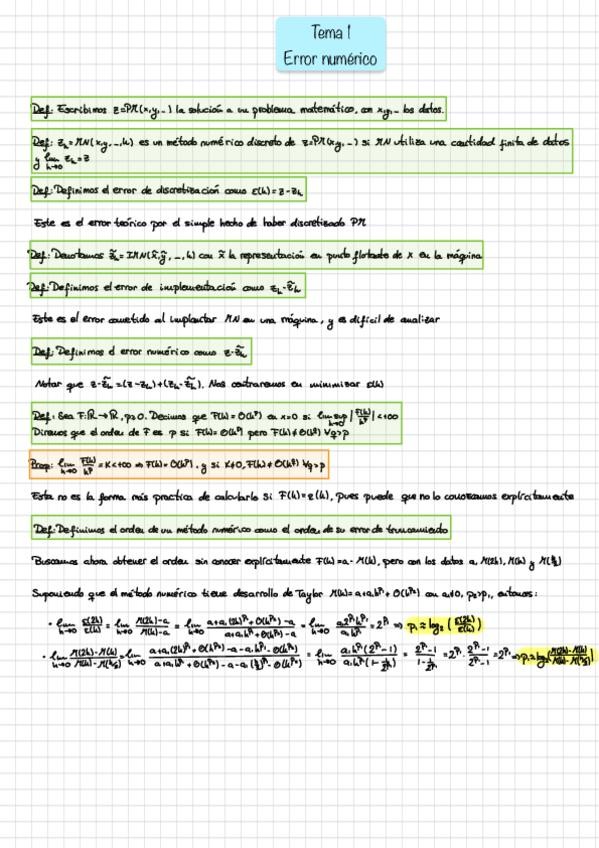 Tema 1
Error numérico
Def: Escribimos z=PM(x,y,…) la solución a un problema matemático, con x,y,… los datos.
Def: z_h=MN(x,y,…,h) es un método numérico discreto de z=PM(x,y,…) si MN utiliza una cantidad finita de datos
y lim_{h→0} z_h=z
Def: Definimos el error de discretización como ε(h)=z-z_h
Este es el error teórico por el simple hecho de haber discretizado PM
Def: Denotamos z̃_h=IMN(x̃,ỹ,…,h) con x̃ la representación en punto flotante de x en la máquina
Def: Definimos el error de implementación como z_h-z̃_h
Este es el error cometido al implantar MN en una máquina, y es difícil de analizar
Def: Definimos el error numérico como z-z̃_h
Notar que z-z̃_h=(z-z_h)+(z_h-z̃_h). Nos centraremos en minimizar ε(h)
Def: Sea F:ℝ→ℝ, p>0. Decimos que F(h)=O(h^p) en x=0 si limsup_{h→0} |F(h)/h^p|<+∞
Diremos que el orden de F es p si F(h)=O(h^p) pero F(h)≠O(h^q) ∀q>p
Prop: lim_{h→0} F(h)/h^p=K<+∞ ⇒ F(h)=O(h^p), y si K≠0, F(h)≠O(h^q) ∀q>p
Esta no es la forma más practica de calcularlo si F(h)=ε(h), pues puede que no lo conozcamos explícitamente
Def: Definimos el orden de un método numérico como el orden de su error de truncamiento
Buscamos ahora obtener el orden sin conocer explícitamente F(h)=a-M(h), pero con los datos a, M(2h), M(h) y M(h/2)
Suponiendo que el método numérico tiene desarrollo de Taylor M(h)=a+a₁h^{p₁}+O(h^{p₂}) con a₁≠0, p₂>p₁, entonces:
• lim_{h→0} ε(2h)/ε(h) = lim_{h→0} (M(2h)-a)/(M(h)-a) = lim_{h→0} (a+a₁(2h)^{p₁}+O(h^{p₂})-a)/(a+a₁h^{p₁}+O(h^{p₂})-a) = lim_{h→0} (a₁2^{p₁}h^{p₁})/(a₁h^{p₁}) = 2^{p₁} ⇒ p₁≈log₂(ε(2h)/ε(h))
• lim_{h→0} (M(2h)-M(h))/(M(h)-M(h/2)) = lim_{h→0} (a+a₁(2h)^{p₁}+O(h^{p₂})-a-a₁h^{p₁}-O(h^{p₂}))/(a+a₁h^{p₁}+O(h^{p₂})-a-a₁(h/2)^{p₁}-O(h^{p₂})) = lim_{h→0} (a₁h^{p₁}(2^{p₁}-1))/(a₁h^{p₁}(1-1/2^{p₁})) = (2^{p₁}-1)/(1-1/2^{p₁}) = 2^{p₁}·(2^{p₁}-1)/(2^{p₁}-1) = 2^{p₁} ⇒ p₁≈log₂|(M(2h)-M(h))/(M(h)-M(h/2))|